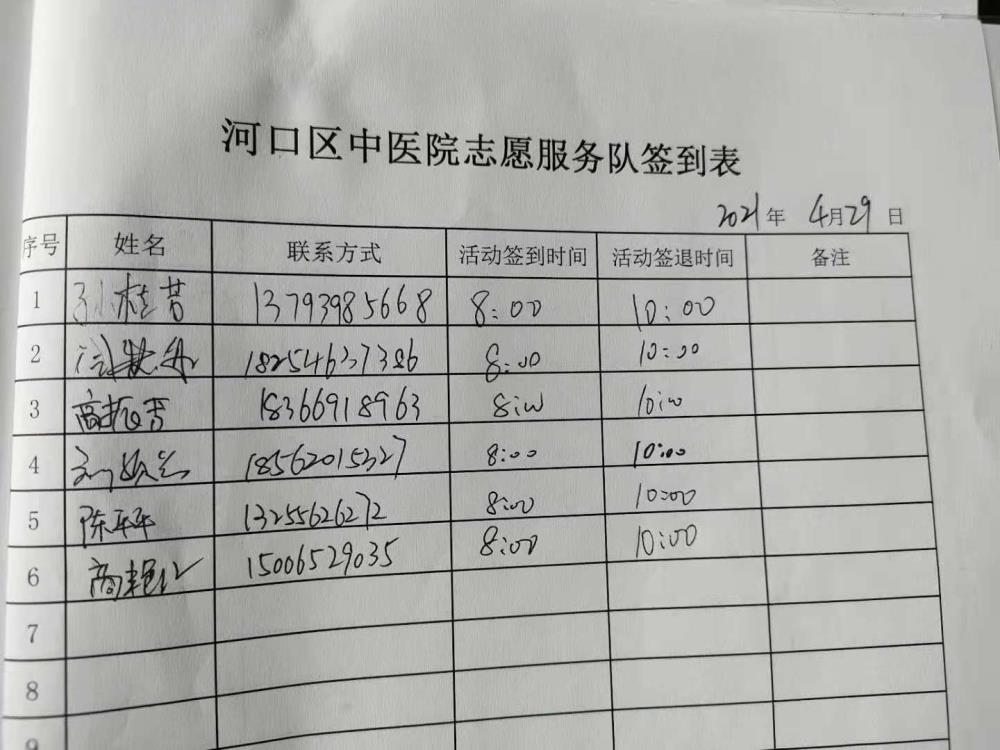 河口区中医院志愿服务队签到表
2021年 4月29日
序号 姓名 联系方式 活动签到时间 活动签退时间 备注
1 孙桂芳 13793985668 8:00 10:00
2 18254637386 8:00 10:00
3 高振芳 18366918963 8:00 10:00
4 18562015327 8:00 10:00
5 陈平平 13255626272 8:00 10:00
6 15006529035 8:00 10:00
7
8
9